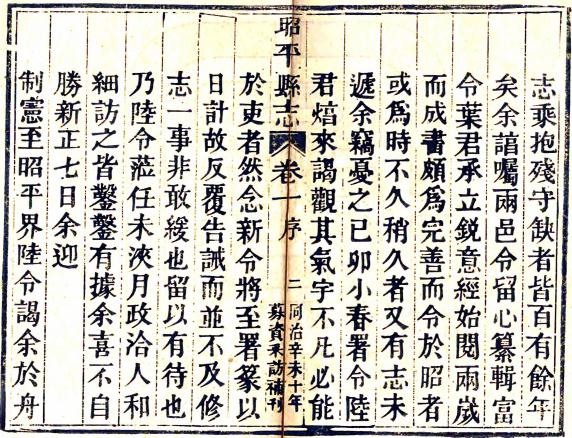 志乘抱殘守缺者皆百有餘年
矣余諳囑兩邑令留心纂輯富
令葉君承立銳意經始閱兩歲
而成書頗爲完善而令於昭者
或爲時不久稍久者又有志未
遞余竊憂之已卯小春署令陸
君焴來謁觀其氣宇不凡必能
昭平縣志 卷一 序 二 同治辛未十年
蘇資釆訪補刊
於吏者然念新令將至署篆以
日計故反覆告誡而並不及修
志一事非敢緩也留以有待也
乃陸令蒞任未浹月政洽人和
細訪之皆鑿鑿有據余喜不自
勝新正七日余迎
制憲至昭平界陸令謁余於舟